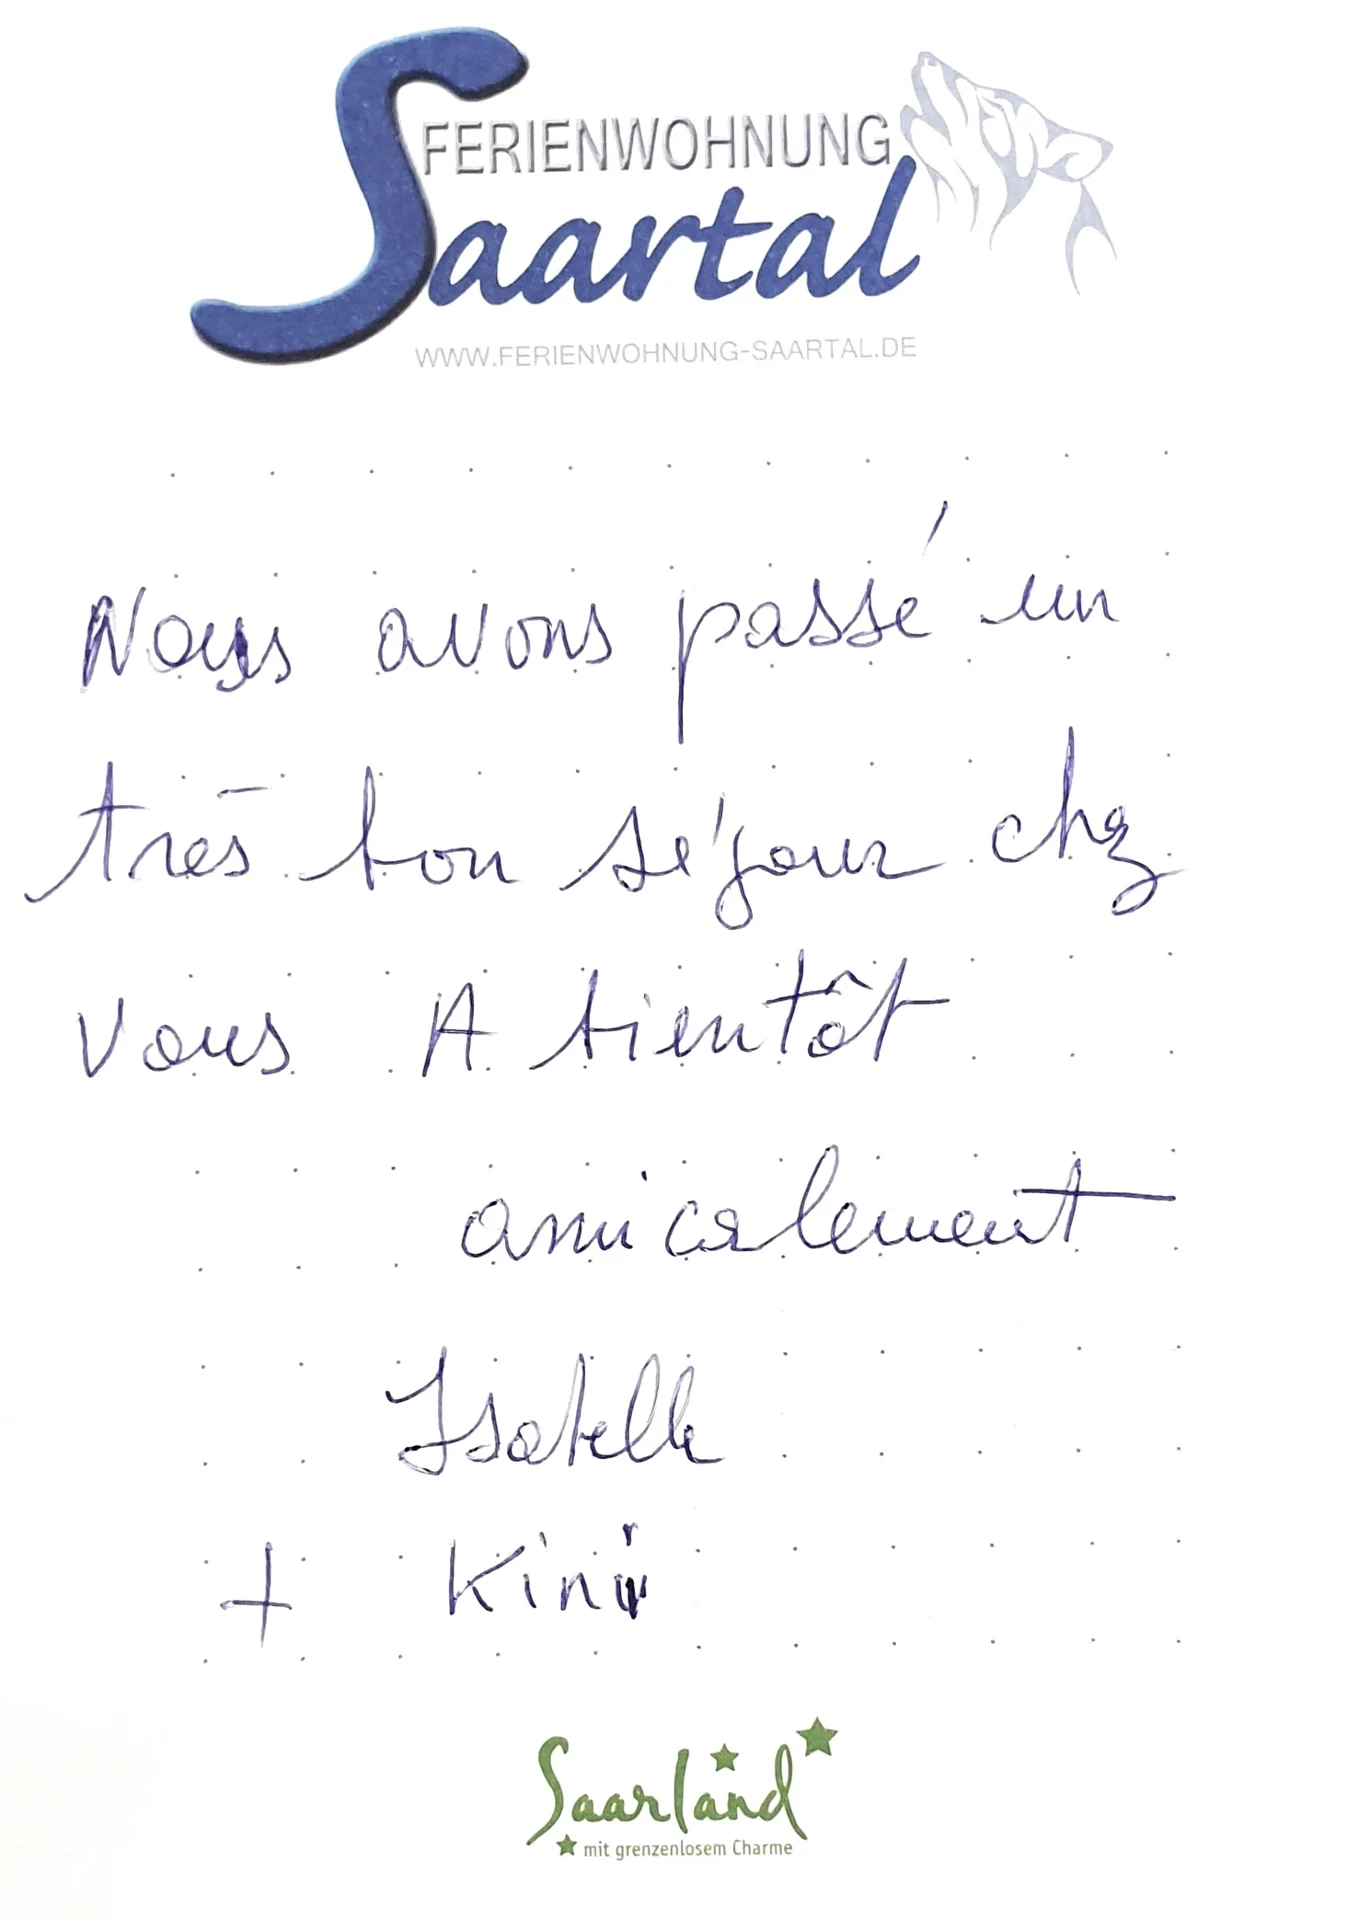 FERIENWOHNUNG
Saartal
WWW.FERIENWOHNUNG-SAARTAL.DE
Nous avons passé un
très bon séjour chez
vous A bientôt
amicalement
Isabelle
+ Kini
Saarland
mit grenzenlosem Charme